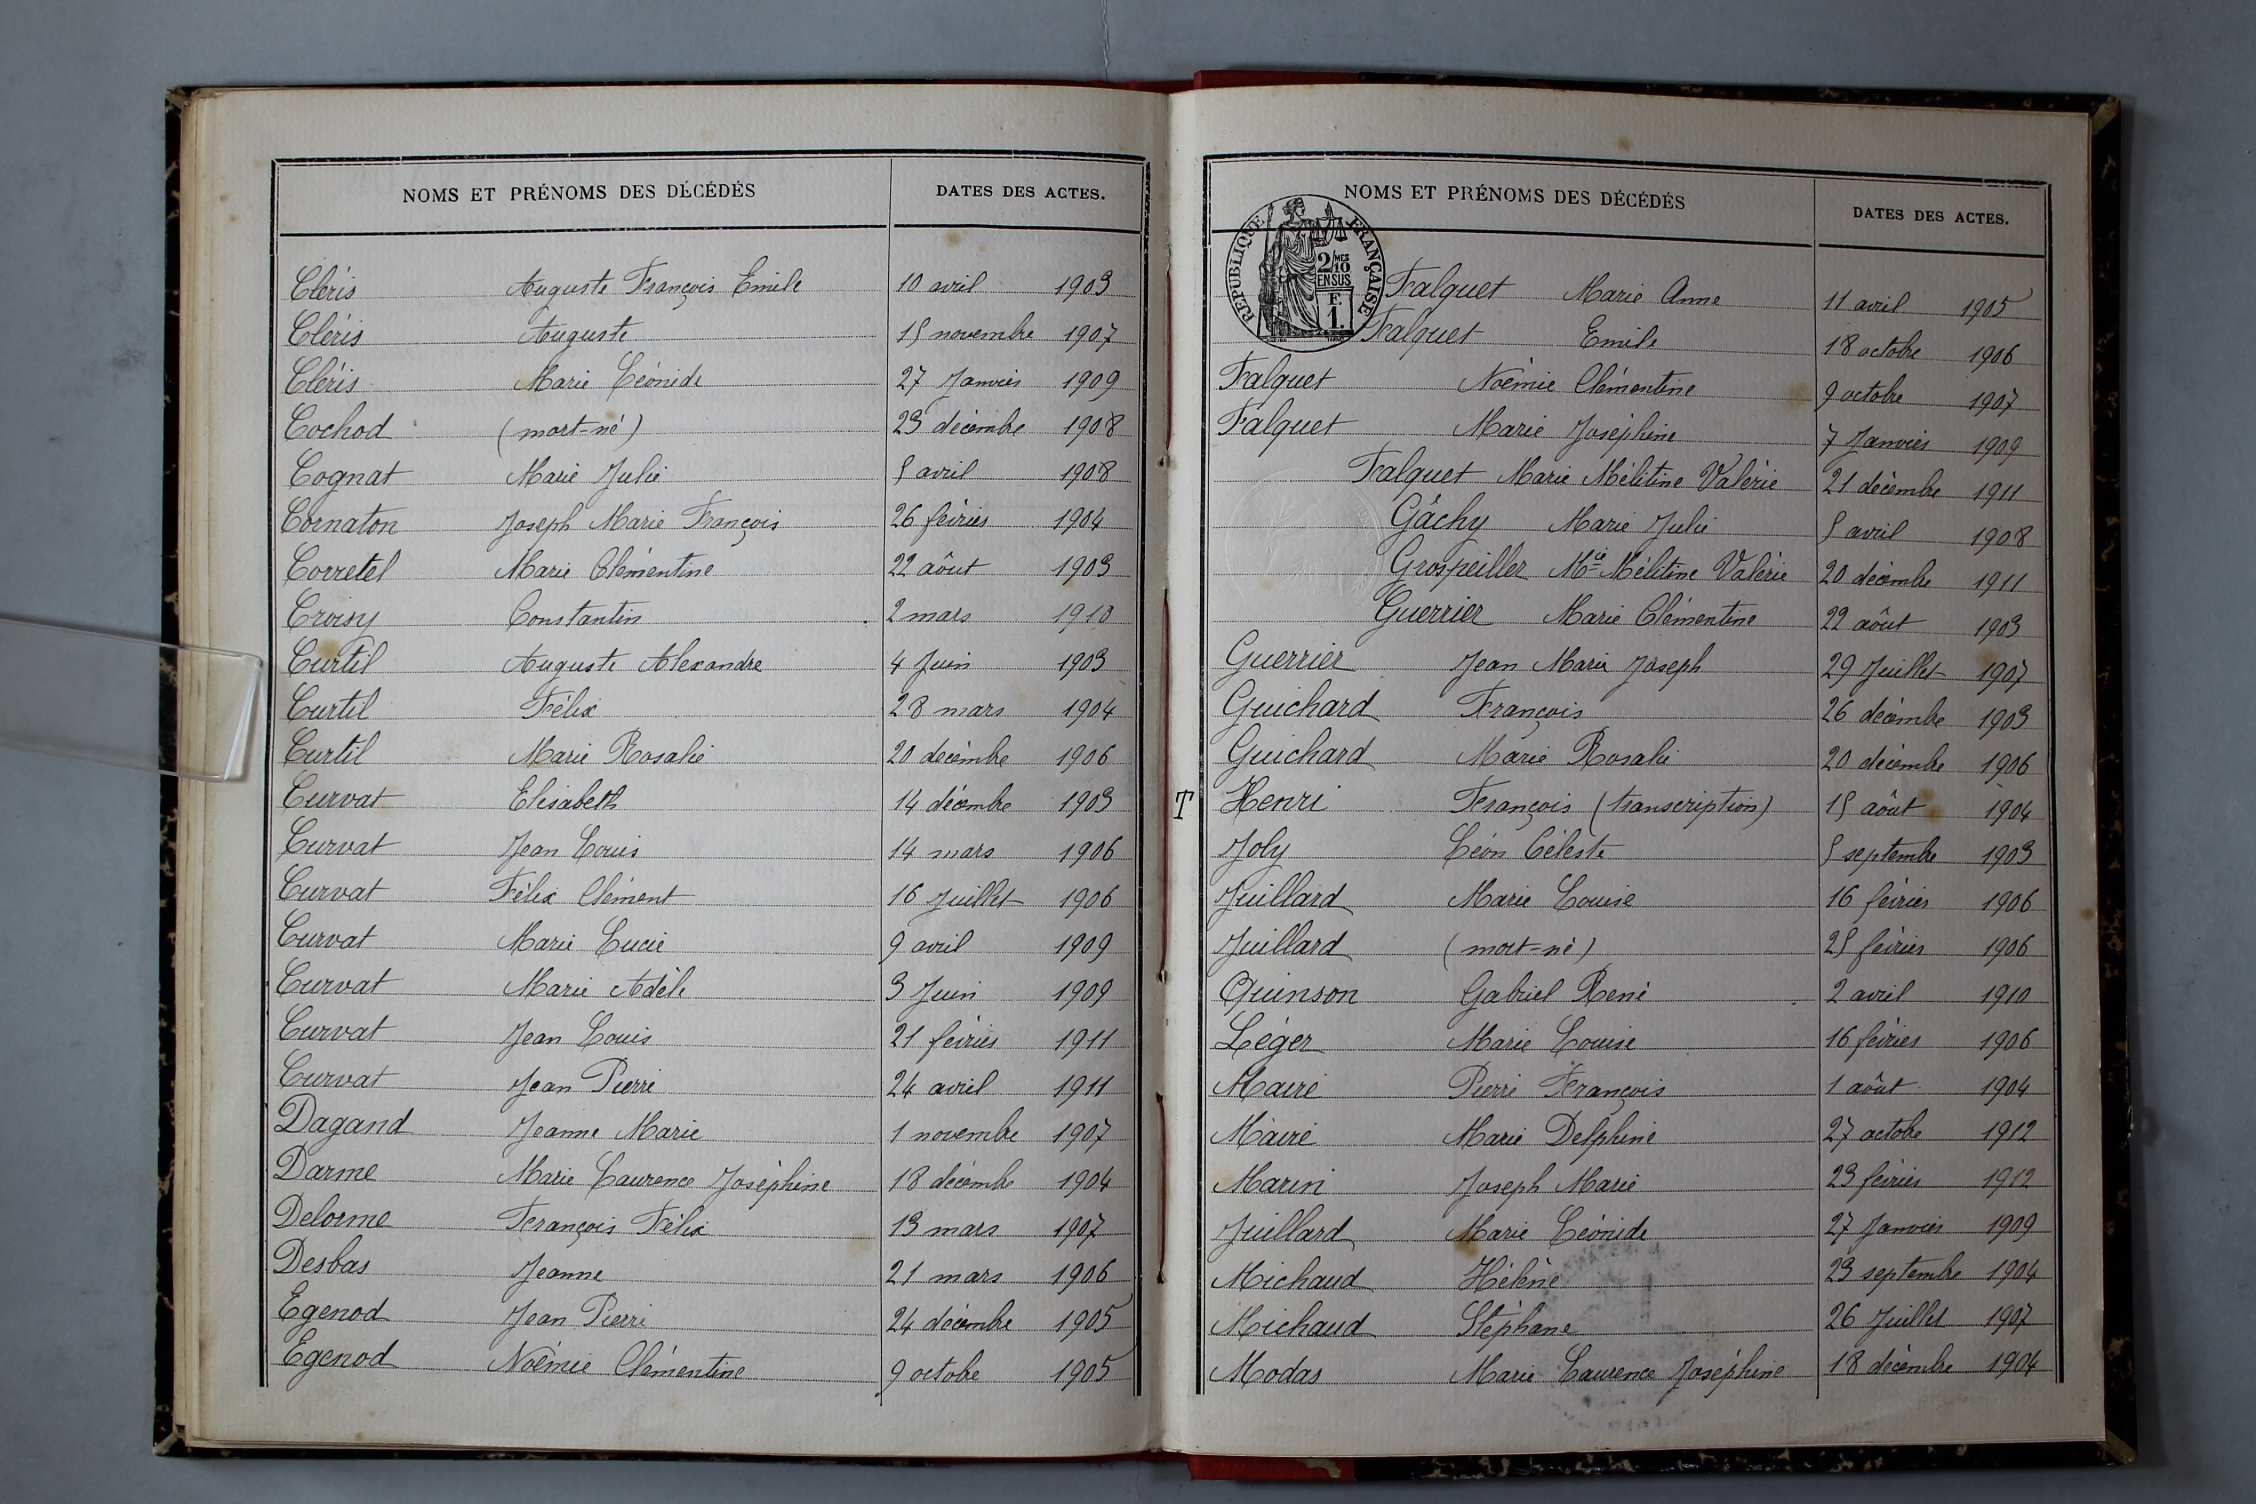 NOMS ET PRÉNOMS DES DÉCÉDÉS DATES DES ACTES.
Cléris Auguste François Emile 10 avril 1903
Cléris Auguste 15 novembre 1907
Cléris Marie Léonide 27 Janvier 1909
Cochod (mort-né) 23 décembre 1908
Cognat Marie Julie 5 avril 1908
Cornaton Joseph Marie François 26 février 1904
Corretel Marie Clémentine 22 aôut 1903
Croisy Constantin 2 mars 1910
Curtil Auguste Alexandre 4 Juin 1903
Curtil Félix 28 mars 1904
Curtil Marie Rosalie 20 décembre 1906
Curvat Elisabeth 14 décembre 1903
Curvat Jean Louis 14 mars 1906
Curvat Félix Clément 16 Juillet 1906
Curvat Marie Lucie 9 avril 1909
Curvat Marie Adèle 3 Juin 1909
Curvat Jean Louis 21 février 1911
Curvat Jean Pierre 24 avril 1911
Dagand Jeanne Marie 1 novembre 1907
Darme Marie Laurence Joséphine 18 décembre 1904
Delorme François Félix 13 mars 1907
Desbas Jeanne 21 mars 1906
Egenod Jean Pierre 24 décembre 1905
Egenod Noémie Clémentine 9 octobre 1905
NOMS ET PRÉNOMS DES DÉCÉDÉS DATES DES ACTES.
RÉPUBLIQUE FRANÇAISE
2/10 MES
EN SUS
F.
1.
Falquet Marie Anne 11 avril 1905
Falquet Emile 18 octobre 1906
Falquet Noémie Clémentine 9 octobre 1907
Falquet Marie Joséphine 7 Janvier 1909
Falquet Marie Mélitine Valérie 21 décembre 1911
Gâchy Marie Julie 5 avril 1908
Grospeiller Mie Mélitine Valérie 20 décembre 1911
Guerrier Marie Clémentine 22 aôut 1903
Guerrier Jean Marie Joseph 29 Juillet 1907
Guichard François 26 décembre 1903
Guichard Marie Rosalie 20 décembre 1906
T Henri François (transcription) 15 aôut 1904
Joly Léon Céleste 5 septembre 1903
Juillard Marie Louise 16 février 1906
Juillard (mort-né) 25 février 1906
Quinson Gabriel René 2 avril 1910
Léger Marie Louise 16 février 1906
Maire Pierre François 1 aôut 1904
Maire Marie Delphine 27 octobre 1912
Marin Joseph Marie 23 février 1912
Juillard Marie Léonide 27 Janvier 1909
Michaud Hélène 23 septembre 1904
Michaud Stéphane 26 Juillet 1907
Modas Marie Laurence Joséphine 18 décembre 1904